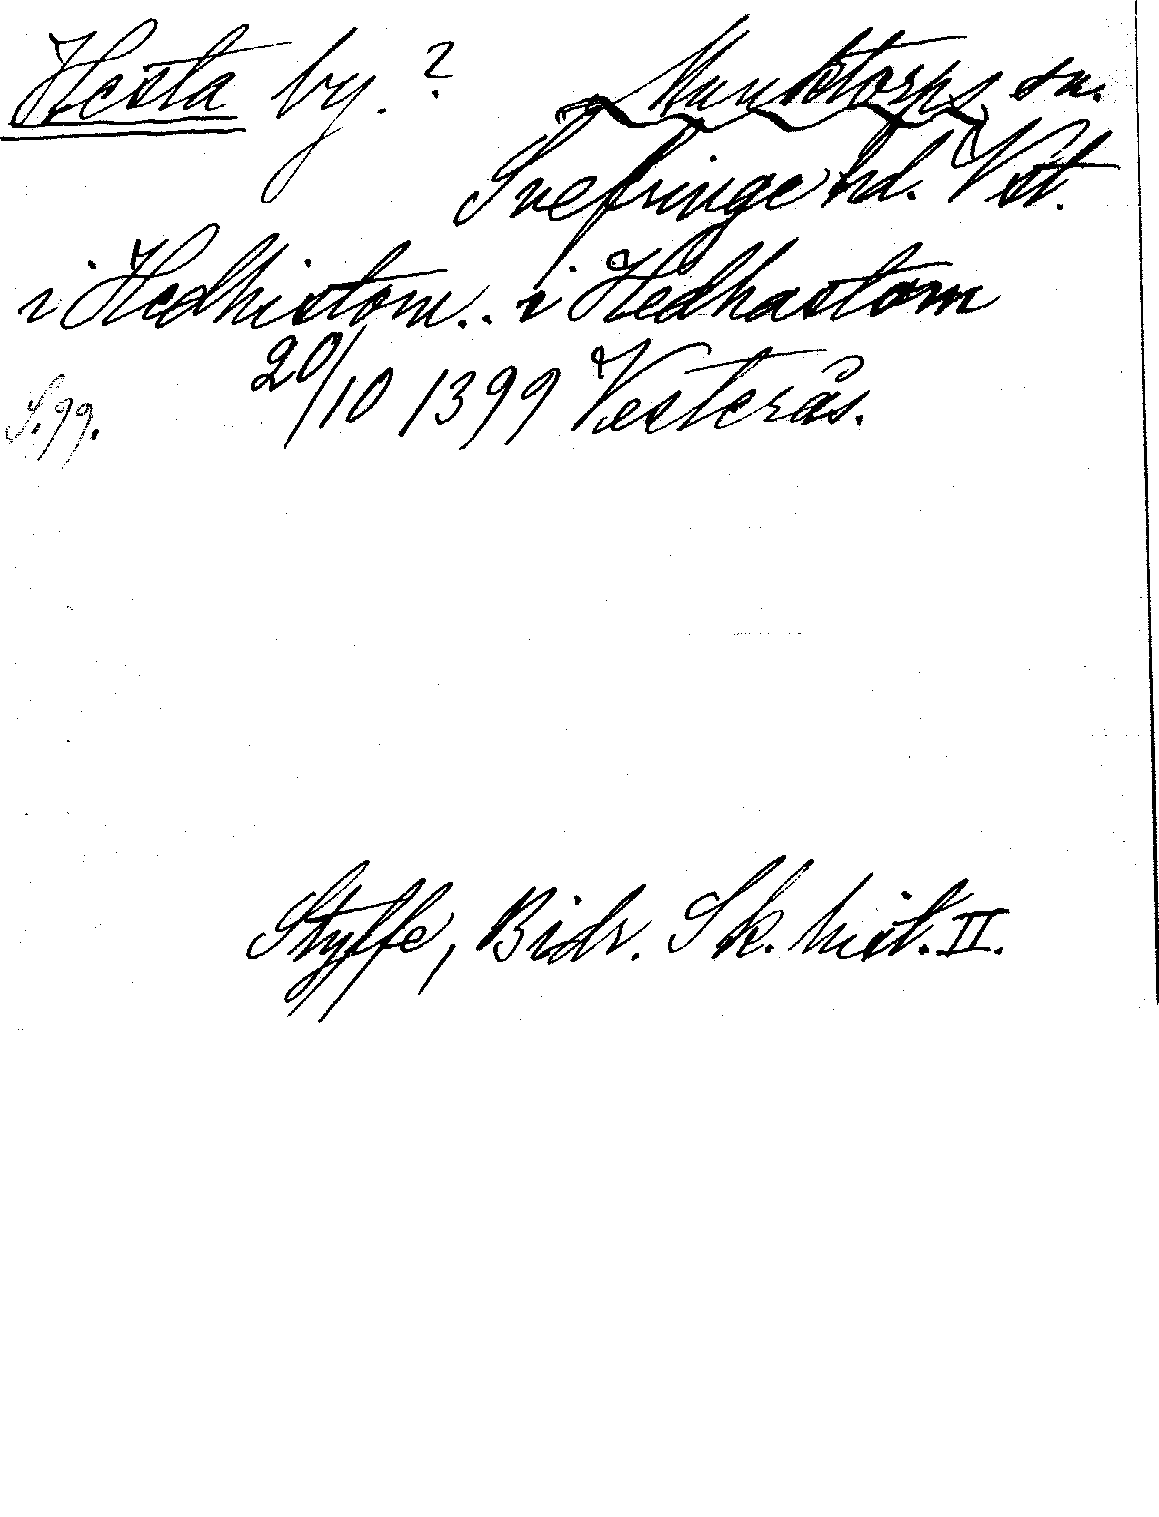 Hesta by.? Munktorps sn.
Snefringe hd. Vst.
i Hedhistom.. i Hedhastom
20/10 1399 Vesterås.
S. 99.
Styffe, Bidr. Sk. hist. II.